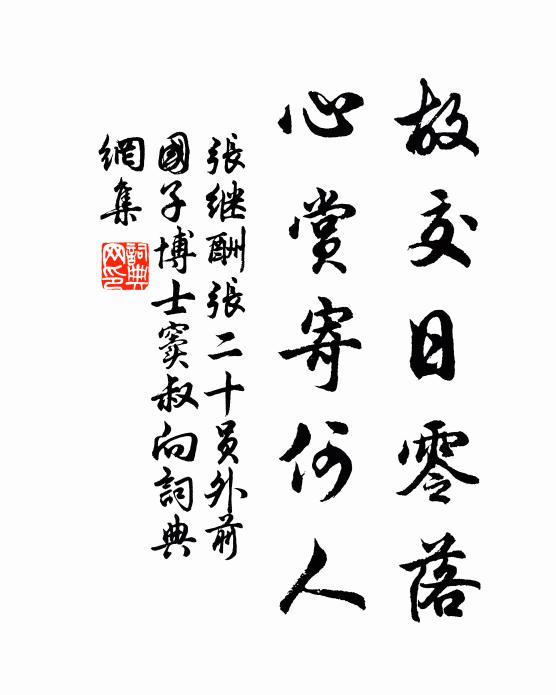 故交日零落
心賞寄何人
張继酬張二十員外前
國子博士竇叔向詞典
網集
詞典网印